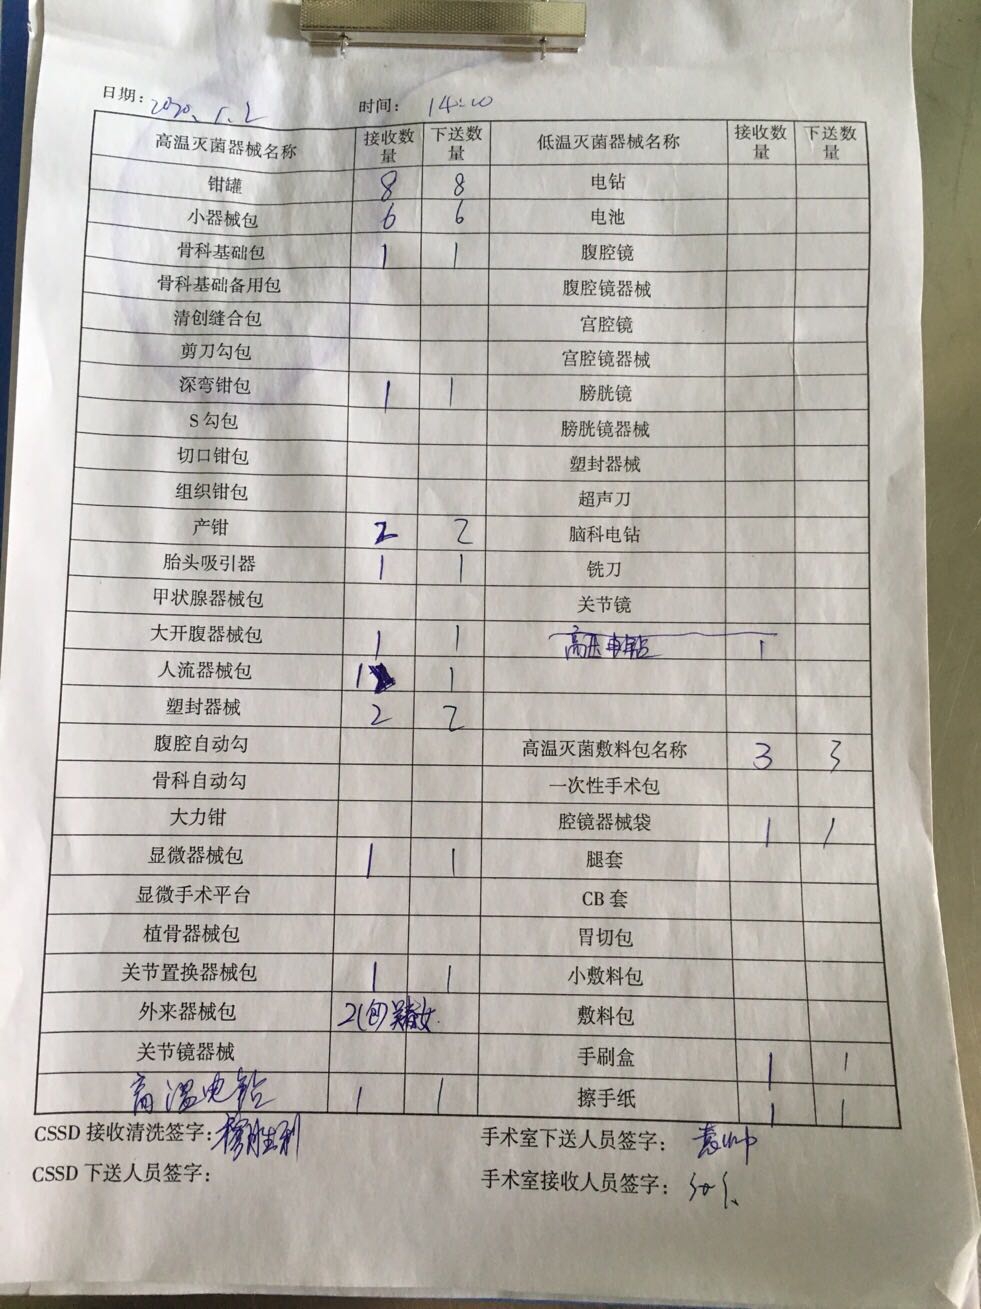 日期: 2020.5.2 时间: 14:20
高温灭菌器械名称 接收数量 下送数量 低温灭菌器械名称 接收数量 下送数量
钳罐 8 8 电钻
小器械包 6 6 电池
骨科基础包 1 1 腹腔镜
骨科基础备用包 腹腔镜器械
清创缝合包 宫腔镜
剪刀勾包 宫腔镜器械
深弯钳包 1 1 膀胱镜
S勾包 膀胱镜器械
切口钳包 塑封器械
组织钳包 超声刀
产钳 2 2 脑科电钻
胎头吸引器 1 1 铣刀
甲状腺器械包 关节镜
大开腹器械包 1 1 高压电钻 1
人流器械包 1 1
塑封器械 2 2
腹腔自动勾 高温灭菌敷料包名称 3 3
骨科自动勾 一次性手术包
大力钳 腔镜器械袋 1 1
显微器械包 1 1 腿套
显微手术平台 CB套
植骨器械包 胃切包
关节置换器械包 1 1 小敷料包
外来器械包 2(包) 敷料包
关节镜器械 手刷盒 1 1
高温电钻 1 1 擦手纸 1 1
CSSD 接收清洗签字: 手术室下送人员签字:
CSSD 下送人员签字: 手术室接收人员签字: